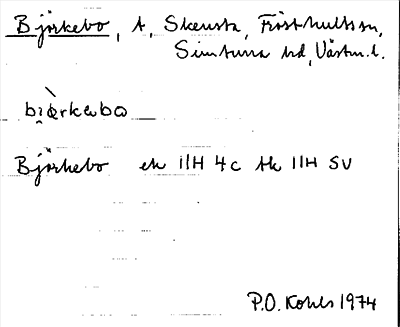 Björkebo, t, Skensta, Frösthults sn,
Simtuna hd, Västm. l.
bi̯ö̀rkəbo
Björkebo ek 11H 4c tk 11H SV
P.O. Kohls 1974